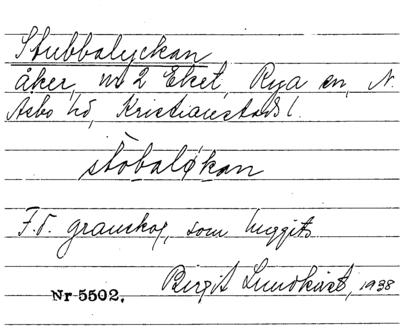 Stubbalyckan
åker, nr 2 Eket, Rya sn, N.
Åsbo hd, Kristianstads l.
stobaløkan
F.d. granskog, som huggits
Birgit Lundkvist, 1938
Nr 5502.